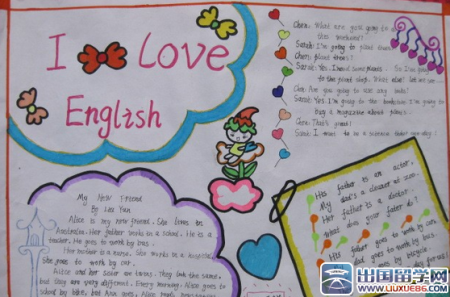 I Love
English
Chen: What are you going to do
this weekend?
Sarah: I'm going to plant trees.
Chen: plant trees?
Sarah: Yes. I need some plants. I'm
to the plant shop. What else
Chen: Are you going to use any
Sarah: Yes. I'm going to the bookstore. I'm going to
buy a magazine about plants.
Chen: That's great!
Sarah: I want to be a science teacher one day.
My New Friend
By Liu Yun
Alice is my new friend. She lives in
Australia. Her father works in a school. He is a
teacher. He goes to work by bus.
Her mother is a nurse. She works in a hospital.
She goes to work by car.
Alice and her sister are twins. They look the same.
but they are very different. Every morning, Alice goes to
school by bike, but Ann
His father is an actor.
My dad's a cleaner at
Her father is a
What does your father do?
His father goes to work by car.
dad goes to work by bus.
by bicycle.
出国留学网
www.liuxue86.com